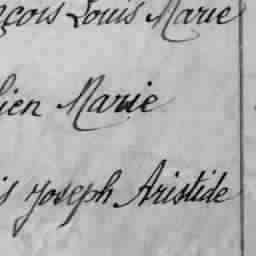 nçois Louis Marie
lien Marie
is Joseph Aristide